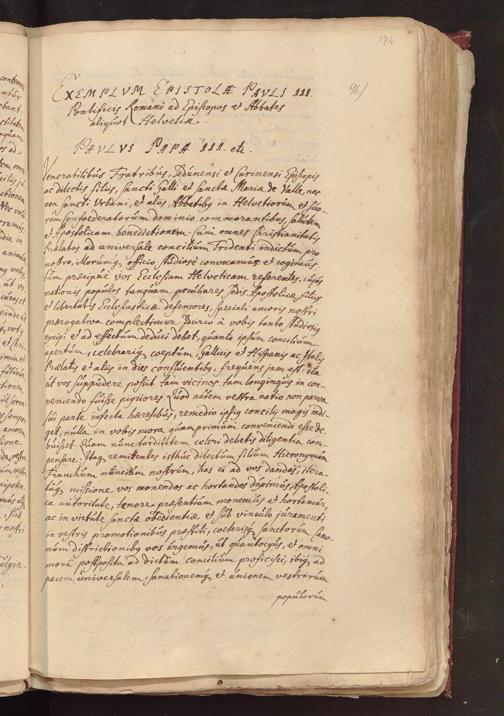 172
96/
EXEMPLVM EPISTOLÆ PAVLI III.
Pontificis Romani ad Episcopos et Abbates
aliquot Helvetiæ.
PAVLVS PAPA III. etc.
Venerabilibus Fratribus, Sedunensi et Curiensi Episcopis
ac dilectis filiis, Sancti Galli et Sanctæ Mariæ de Valle, nec
non Sancti Urbani, et aliis Abbatibus in Helvetiorum et suo-
rum Confoederatorum dominio commorantibus, salutem
et Apostolicam benedictionem. Cum omnes Christianitatis
Prælatos ad universale concilium Tridenti indictum pro
nostro, illorumque officio, studiose convocamus et cogimus
tum præcipue vos Ecclesiam Helveticam referentes, cujus
nationis populos tanquam peculiares sedis Apostolicæ filios
et libertatis Ecclesiasticæ defensores, speciali amoris nostri
prærogativa complectimur. Decirco à vobis tanto studiosius
expeti et ad effectum deduci debet, quanto ipsum concilium
apertum, celebrarique coeptum, Gallicis et Hispanis ac Italis
Prælatis et aliis in dies confluentibus, frequens jam est, ita
ut vos suppudere possit tam vicinos tam longinquis in con-
veniendo fuisse pigriores. Quod autem vestra natio non parva
sui parte infecta hæresibus, remedio ipsius concilii magis indi-
get, nulla in vobis mora quamprimum conveniendi esse de-
buisset. Quam nunc tarditatem celeri debetis diligentia com-
pensare. Itaque remittentes istuc dilectum filium Hieronymum
Franchum nuncium nostrum, has ei ad vos dandas, itera-
tique missione vos monendos ac hortandos duximus, Apostoli-
ca autoritate, tenore præsentium monemus et hortamur,
ac in virtute sanctæ obedientiæ et sub vinculo juramenti
in vestris promotionibus præstiti, cæterisque sanctorum Cano-
num districtionibus vos urgemus, ut quantocyus, et omni
mora postposita ad dictum concilium proficisci, ibique ad
pacem universalem, sanationemque et unionem vestrorum
populorum